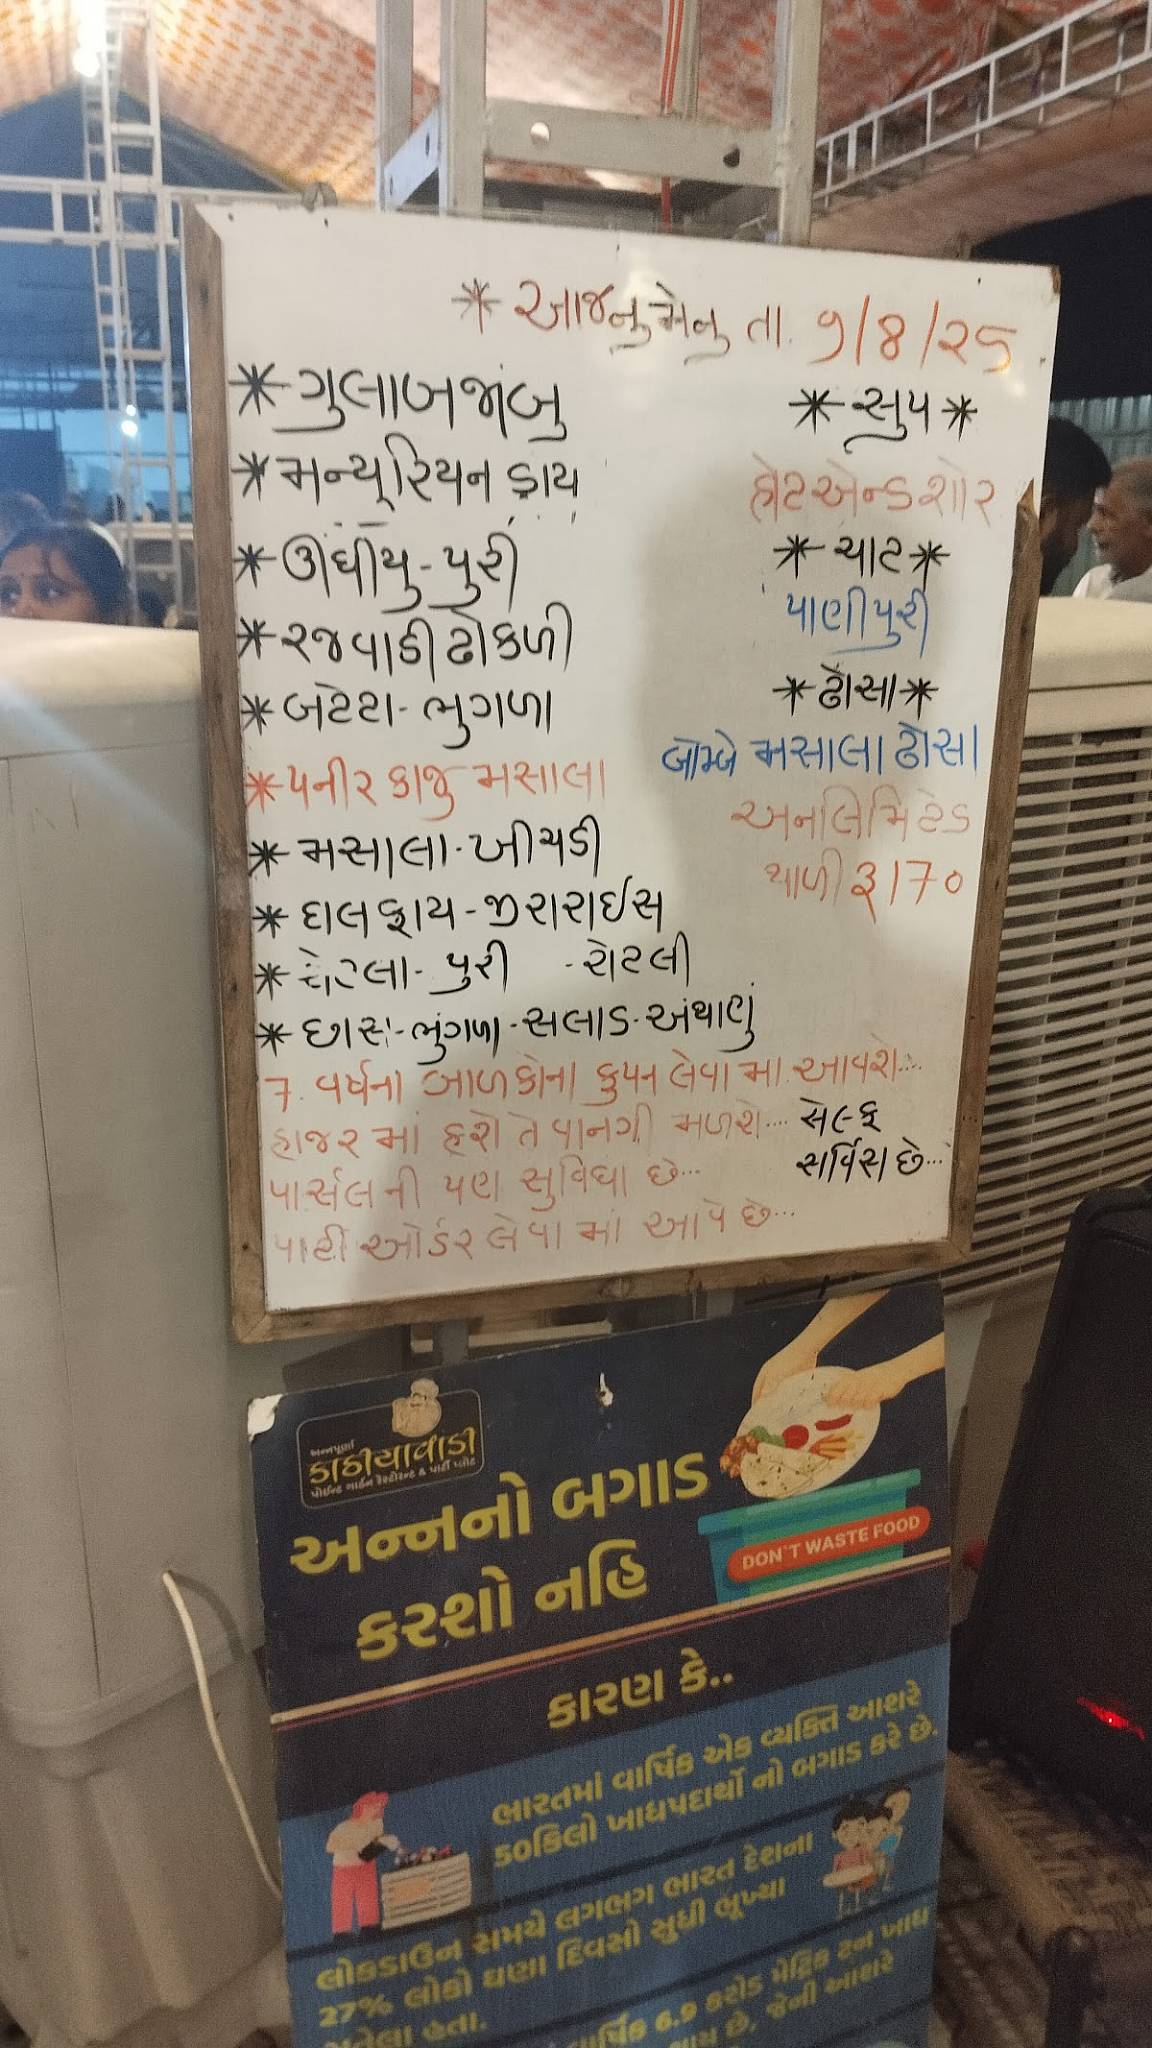 * આજનુ મેનુ તા. ૭/8/૨૫
* ગુલાબજાંબુ
* મન્ચૂરિયન ડ્રાય
* ઊંધીયુ - પુરી
* રજવાડી ઢોકળી
* બટેટા - ભુગળા
* પનીર કાજુ મસાલા
* મસાલા - ખીચડી
* દાલ ફ્રાય - જીરારાઈસ
* રોટલા - પુરી - રોટલી
* છાસ - ભુંગળા - સલાડ - અંથાણું
* સુપ *
હોટ એન્ડ શોર
* ચાટ *
પાણીપુરી
* ઢોસા *
બોમ્બે મસાલા ઢોસા
અનલિમિટેડ
થાળી રૂ 170
7. વર્ષના બાળકોના કુપન લેવામા આવશે...
હાજરમાં હશે તે વાનગી મળશે...
પાર્સલની પણ સુવિધા છે...
પાર્ટી ઓર્ડર લેવામાં આવે છે...
સેલ્ફ
સર્વિસ છે...
અન્નપૂર્ણા
કાઠીયાવાડી
પોઈન્ટ ગાર્ડન રેસ્ટોરન્ટ & પાર્ટી પ્લોટ
અન્નનો બગાડ
કરશો નહિ
DON'T WASTE FOOD
કારણ કે..
ભારતમાં વાર્ષિક એક વ્યક્તિ આશરે
50કિલો ખાધપદાર્થો નો બગાડ કરે છે.
લોકડાઉન સમયે લગભગ ભારત દેશના
27% લોકો ઘણા દિવસો સુધી ભૂખ્યા
હતા.
6.9 કરોડ મેટ્રિક ટન ખાધ
છે, જેની આશરે